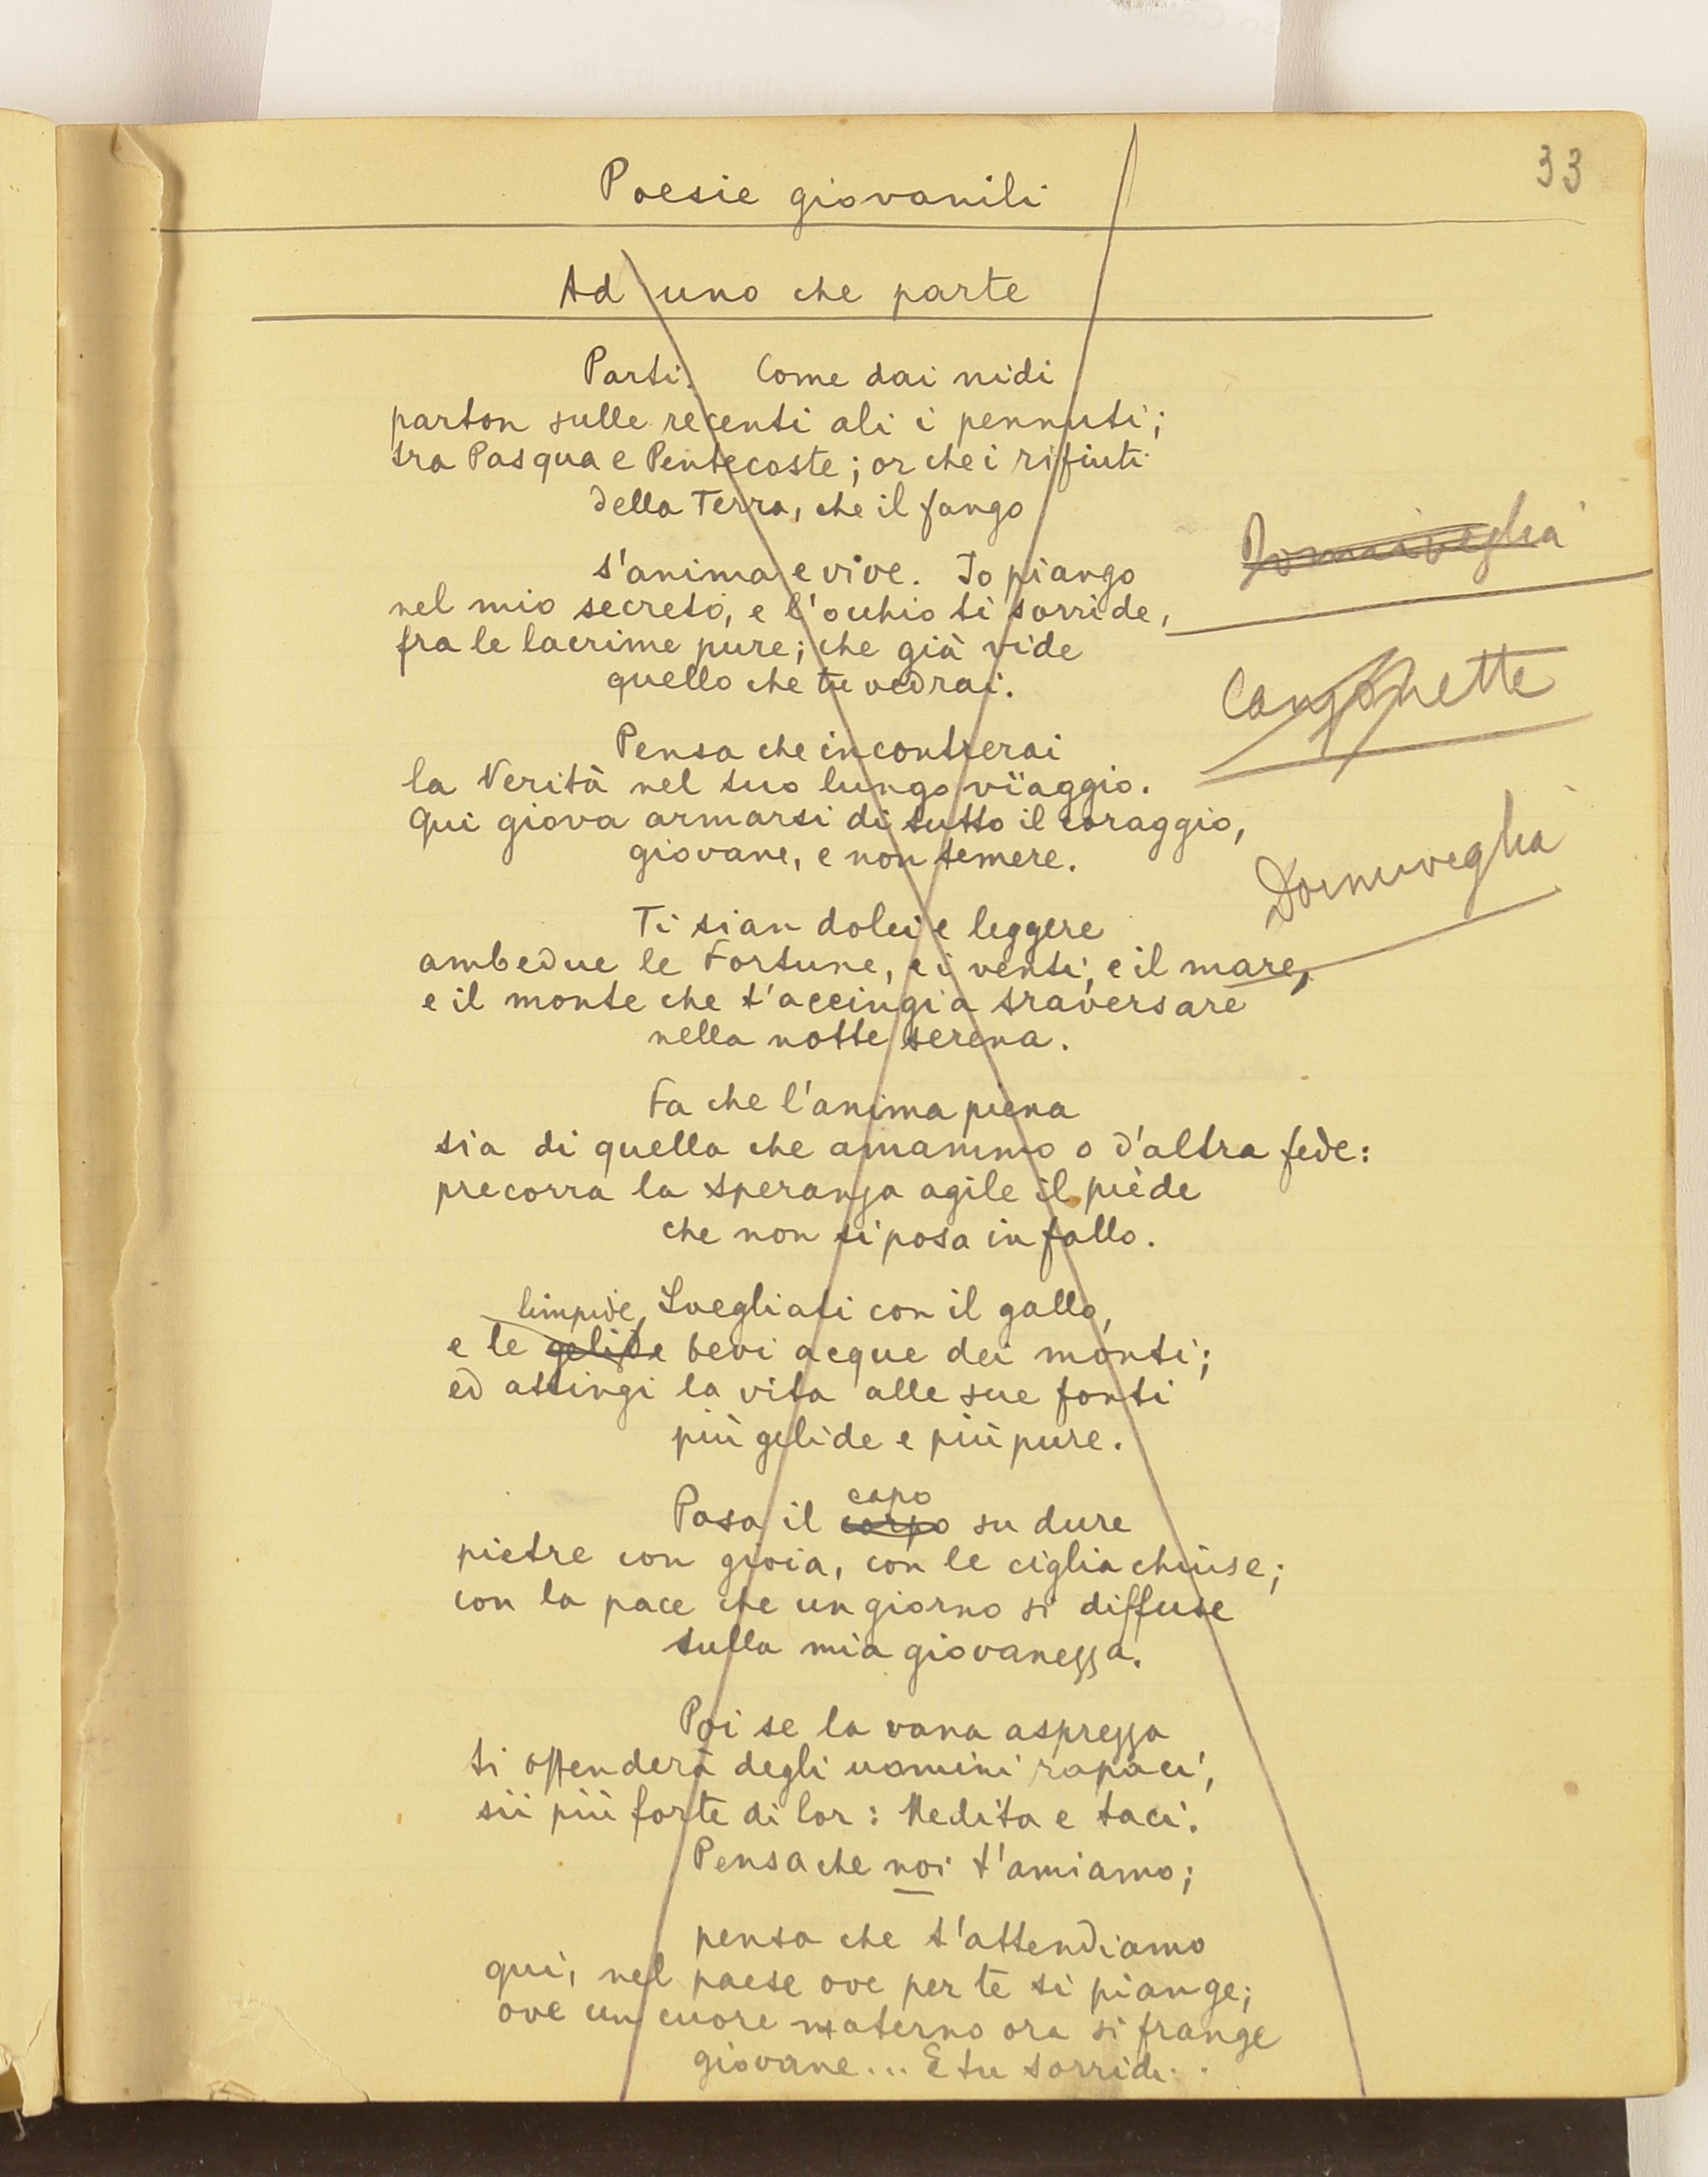 33
Poesie giovanili
Ad uno che parte
Parti. Come dai nidi
parton sulle recenti ali i pennuti;
tra Pasqua e Pentecoste; or che i rifiuti
della Terra, che il fango
s'anima e vive. Io piango
nel mio secreto, e l'occhio ti sorride,
fra le lacrime pure; che già vide
quello che tu vedrai.
Pensa che incontrerai
la Verità nel tuo lungo vïaggio.
Qui giova armarsi di tutto il coraggio,
giovane, e non temere.
Ti sian dolci e leggere
ambedue le Fortune, e i venti, e il mare,
e il monte che t'accingi a traversare
nella notte serena.
Fa che l'anima piena
sia di quella che amammo o d'altra fede:
precorra la speranza agile il piède
che non si posa in fallo.
Svegliati con il gallo,
limpide
e le gelide bevi acque dei monti;
ed attingi la vita alle sue fonti
più gelide e più pure.
capo
Posa il corpo su dure
pietre con gioia, con le ciglia chiuse;
con la pace che un giorno si diffuse
sulla mia giovanezza.
Poi se la vana asprezza
ti offenderà degli uomini rapaci,
sii più forte di lor: Medita e taci.
Pensa che noi t'amiamo;
pensa che t'attendiamo
qui, nel paese ove per te si piange;
ove un cuore materno ora si frange
giovane... E tu sorridi..
Dormiveglia
Canzonette
Dormiveglia